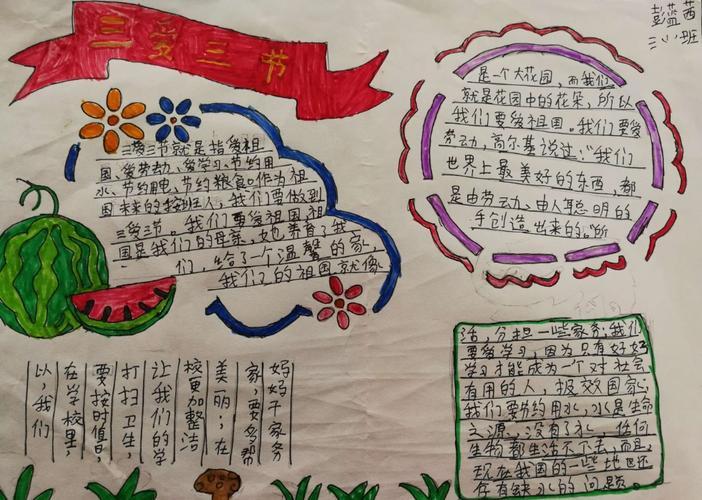 三爱三节
彭蓝茜
三爱三节就是指爱祖
国、爱劳动、爱学习、节约用
水、节约用电、节约粮食。作为祖
国未来的接班人,我们要做到
三爱三节。我们要爱祖国,祖
国是我们的母亲,她养育了我
们,给了一个温馨的家。
我们的祖国就像
是一个大花园,而我们
就是花园中的花朵,所以
我们要爱祖国。我们要爱
劳动,高尔基说过:“我们
世界上最美好的东西,都
是由劳动、由人聪明的
手创造出来的。”所
以,我们
在学校里,
要按时值日,
打扫卫生,
让我们的学
校更加整洁
美丽;在
家,要多帮
妈妈干家务
活,分担一些家务;我们
要爱学习,因为只有好好
学习才能成为一个对社会
有用的人,报效国家。
我们要节约用水,水是生命
之源,没有了水,任何
生物都生活不下去,而且,
现在我国的一些地也还
存在缺水的问题。